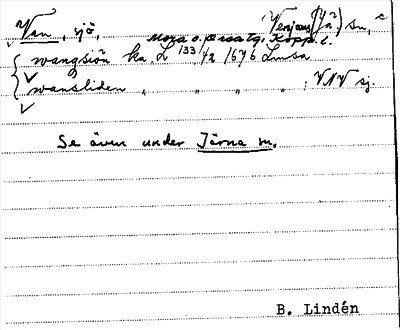 Van, sjö, Venjans (Yå) sn,
Mora o. Orsa tg. Kopp. l.
wangsiön ka. L 133/42 1676 Lmsa
wansliden " " " " ; VNV sj.
Se även under Järna sn.
B. Lindén